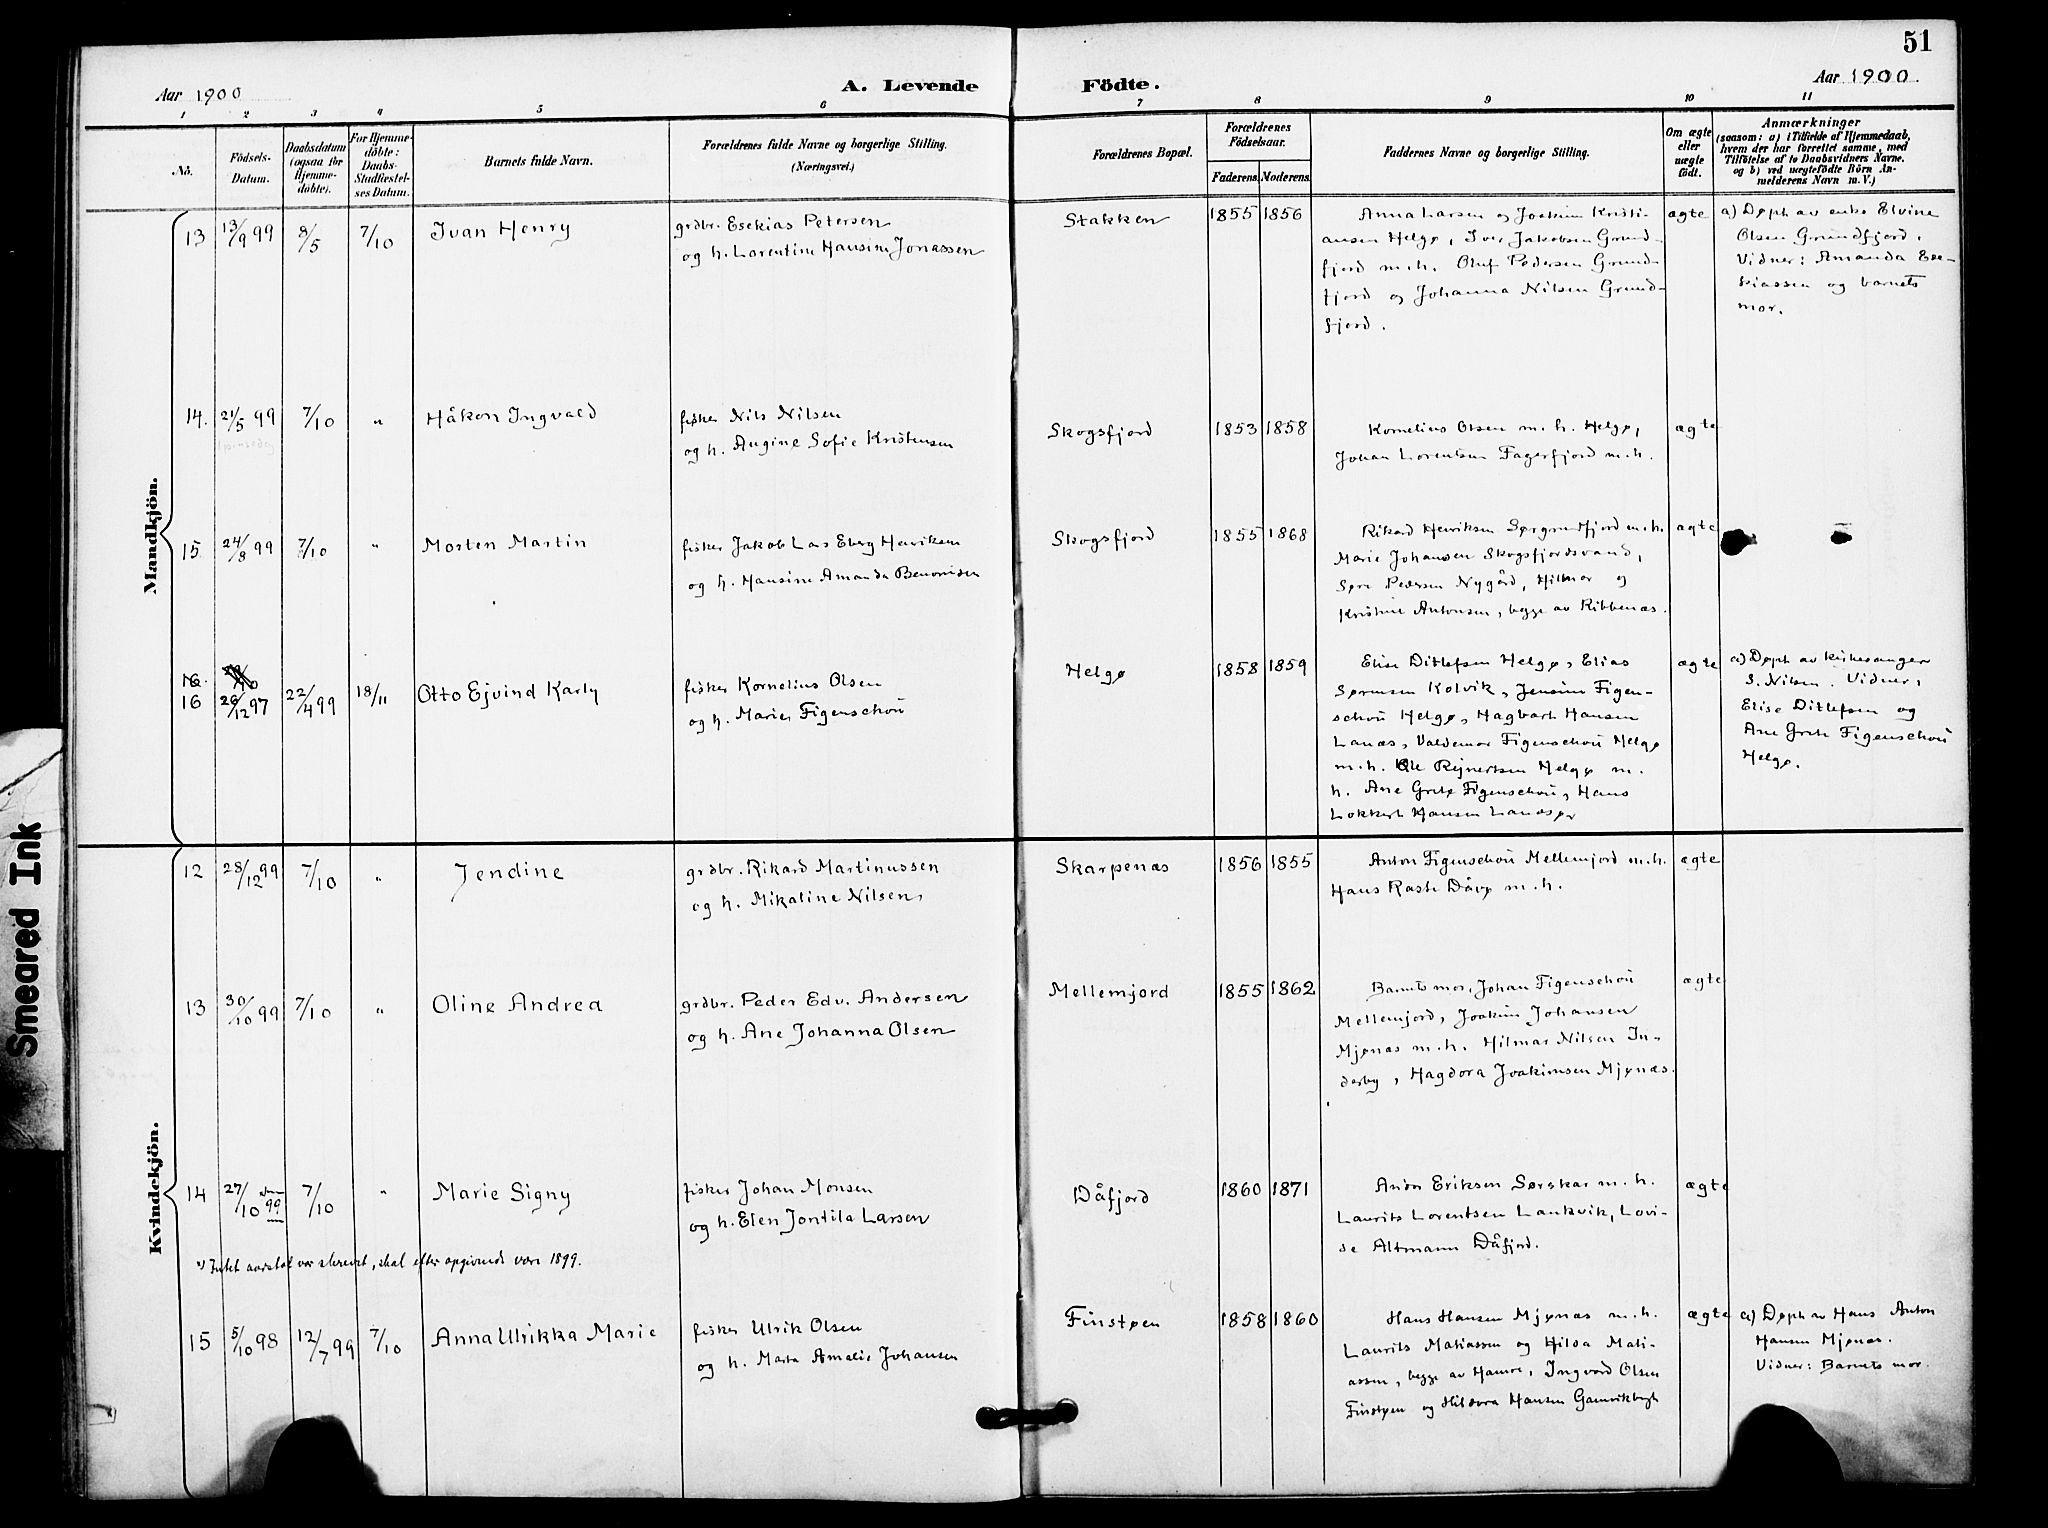 51
Aar 1900
A. Levende
Födte.
Aar 1900.
1 2 3 4 5 6 7 8 9 10 11
No.
Födsels-
Datum.
Daabsdatum
(ogsaa for
Hjemme-
døbte).
For Hjemme-
döbte:
Daabs-
Stadfæstel-
ses Datum.
Barnets fulde Navn.
Forældrenes fulde Navne og borgerlige Stilling.
(Næringsvei.)
Forældrenes Bopæl.
Forældrenes
Födselsaar.
Faderens. Moderens.
Faddernes Navne og borgerlige Stilling.
Om ægte
eller
uægte
født.
Anmærkninger
(saasom: a) i Tilfælde af Hjemmedaab,
hvem der har forrettet samme, med
Tilføielse af to Daabsvidners Navne.
og b) ved uægtefødte Börn An-
melderens Navn m. V.)
Mandkjön.
13 13/9 99 8/5 7/10 Ivan Henry
grdbr. Esekias Petersen
og h. Lorentine Hansine Jonassen
Stakken 1855 1856
Anna Larsen og Joakim Kristi-
ansen Helgø, Iver Jakobsen Grund-
fjord m.h. Oluf Pedersen Grund-
fjord og Johanna Nilsen Grund-
fjord.
ægte
a) Døpt av enke Elvine
Olsen Grundfjord.
Vidner: Amanda Ese-
kiassen og barnets
mor.
14. 21/5 99 7/10 " Håkon Ingvald
fisker Nils Nilsen
og h. Augine Sofie Kristensen
Skogsfjord 1853 1858
Kornelius Olsen m. h. Helgø,
Johan Lorentsen Fagerfjord m.h.
ægte
15 24/8 99 7/10 " Morten Martin
fisker Jakob Lars Eberg Henriksen
og h. Hansine Amanda Benonisen
Skogsfjord 1855 1868
Rikard Henriksen Sørgrundfjord m.h.
Marie Johansen Skogsfjordvand,
Søre Pedersen Nygård, Hilmar og
Kristine Antonsen, begge av Ribbenæs.
ægte
16.
16 26/12 97 22/4 99 18/11 Otto Ejvind Karly
fisker Kornelius Olsen
og h. Marie Figenschou
Helgø 1858 1859
Elise Ditlefsen Helgø, Elias
Sørensen Kolvik, Jensine Figen-
schou Helgø, Hagbart Hansen
Lanæs, Valdemar Figenschou Helgø
m.h. Ole Rejnertsen Helgø m.
h. Ane Grete Figenschou, Hans
Lokkert Hansen
ægte
a) Døpt av kirkesanger
S. Nilsen. Vidner,
Elise Ditlefsen og
Ane Grete Figenschou
Helgø.
Kvindekjön.
12 28/12 99 7/10 " Jendine
grdbr. Rikard Martinussen
og h. Mikaline Nilsen
Skarpenæs 1856 1855
Anton Figenschou Mellemjord m.h.
Hans Rasch Dåvø m.h.
ægte
13 30/10 99 7/10 " Oline Andrea
grdbr. Peder Edv. Andersen
og h. Ane Johanna Olsen
Mellemjord 1855 1862
Barnets mor, Johan Figenschou
Mellemjord, Joakim Johansen
Mjønæs m.h. Hilmar Nilsen In-
derby, Hagdora Joakimsen Mjønæs.
ægte
14 27/10 99 7/10 " Marie Signy
fisker Johan Monsen
og h. Elen Jontila Larsen
Dåfjord 1860 1871
Andor Eriksen Sørskar m.h.
Laurits Lorentsen Lankvik, Lovi-
se Altmann Dåfjord.
ægte
*) Intet aarstal var skrevet, skal efter opgivende være 1899.
15 5/10 98 12/7 99 7/10 Anna Ulrikka Marie
fisker Ulrik Olsen
og h. Marta Amalie Johansen
Finstøen 1858 1860
Hans Hansen Mjønæs m.h.
Laurits Matiassen og Hilda Mati-
assen, begge av Hamre, Ingvard Olsen
Finstøen og Hildora Hansen Gamvikbugt
ægte
a) Døpt av Hans Anton
Hansen Mjønæs.
Vidner: Barnets mor.
Smeared Ink